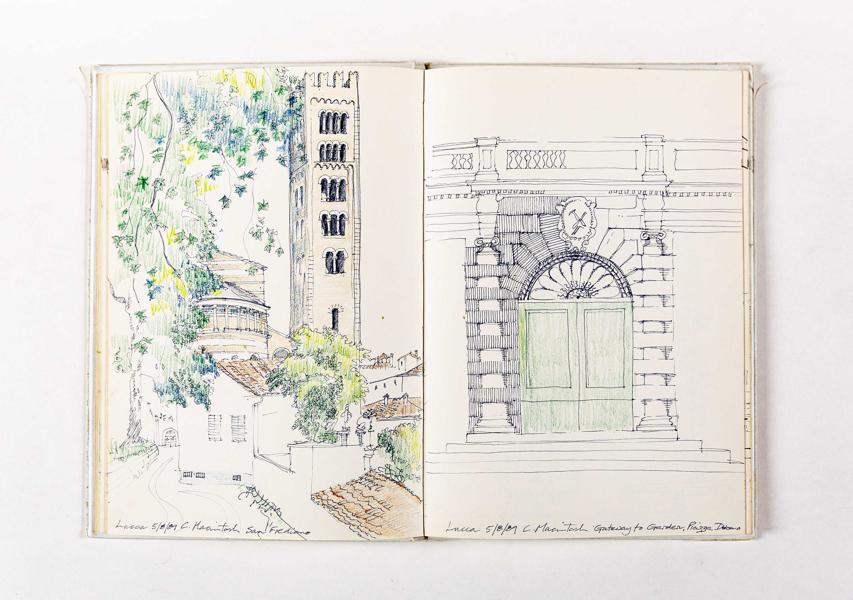 Lucca 5/8/89 C. Macintosh San Frediano
Lucca 5/8/89 C. Macintosh Gateway to Garden, Piazza